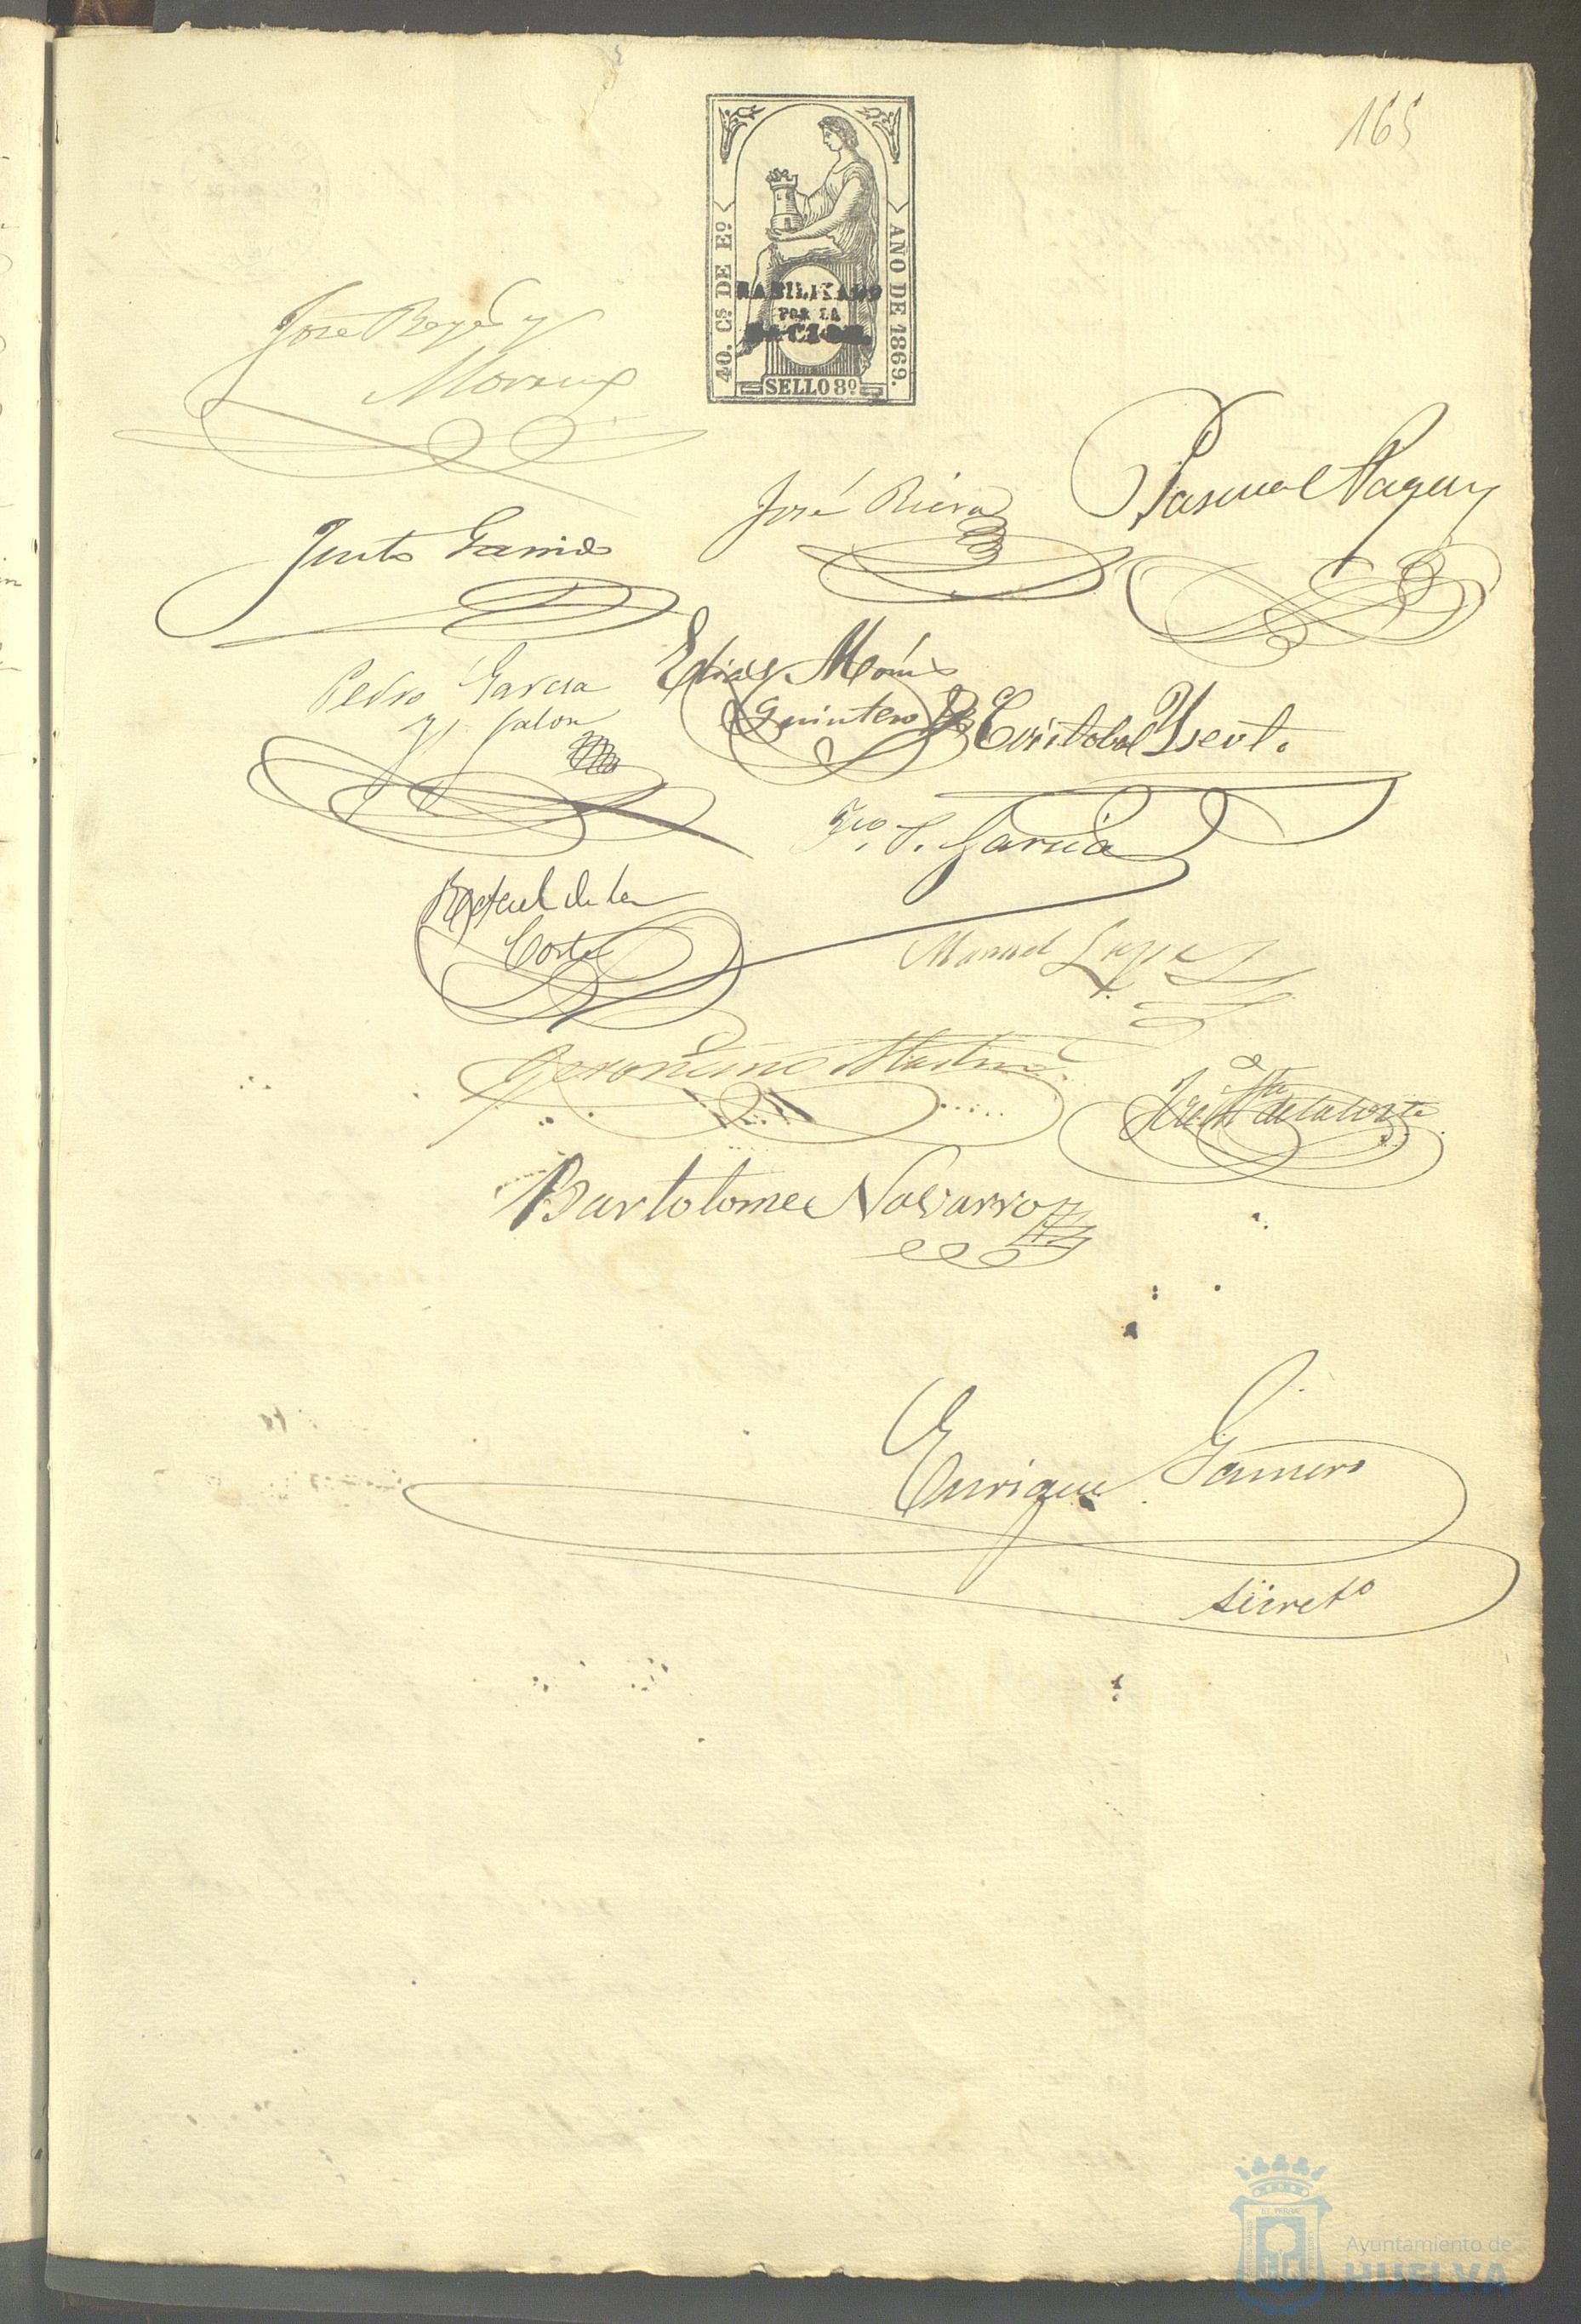 165
40. Cs DE Eo
AÑO DE 1869.
HABILITADO
POR LA
NACION.
SELLO 8o
José Reyes y
Moreno
José Riera
Pascual
Justo Garrido
Pedro Garcia
y Galon
Elias
Quintero
Cristobal
Fco. P. Garcia
Rafael de la
Corte
Manuel
Geronimo Martin
de la Corte
Bartolome Navarro
Enrique Gamero
Secreto
Ayuntamiento de
HUELVA